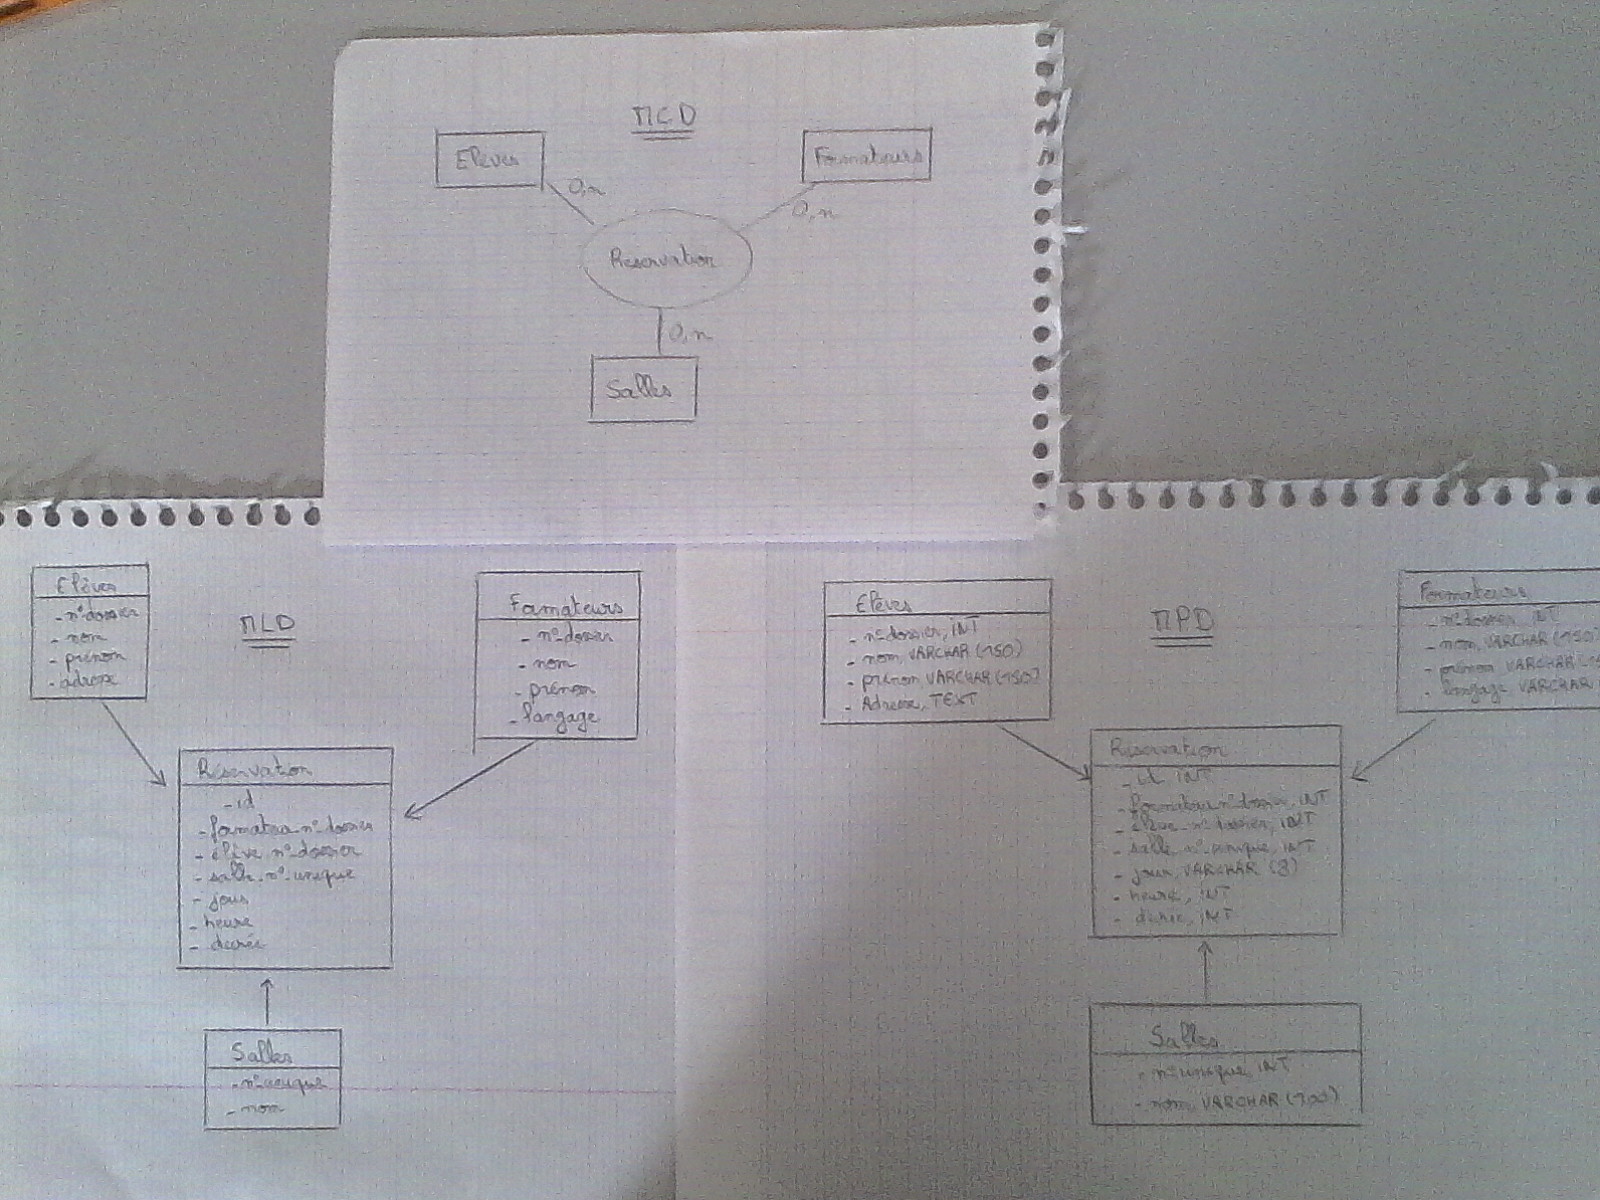 MCD
Elèves
Formateurs
0,n
0,n
Réservation
0,n
Salles
MLD
Elèves
- n°dossier
- nom
- prénom
- adresse
Formateurs
- n°dossier
- nom
- prénom
- langage
Réservation
- id
- formateur_n°dossier
- élève_n°dossier
- salle_n°-unique
- jour
- heure
- durée
Salles
- n°-unique
- nom
MPD
Elèves
- n°dossier, INT
- nom, VARCHAR (150)
- prénom, VARCHAR (150)
- Adresse, TEXT
Formateurs
- n°dossier, INT
- nom, VARCHAR (150)
- prénom VARCHAR (15
- langage VARCHAR
Réservation
- id INT
- formateur_n°dossier, INT
- élève_n°dossier, INT
- salle_n°-unique, INT
- jour, VARCHAR (8)
- heure, INT
- durée, INT
Salles
- n°-unique, INT
- nom, VARCHAR (100)